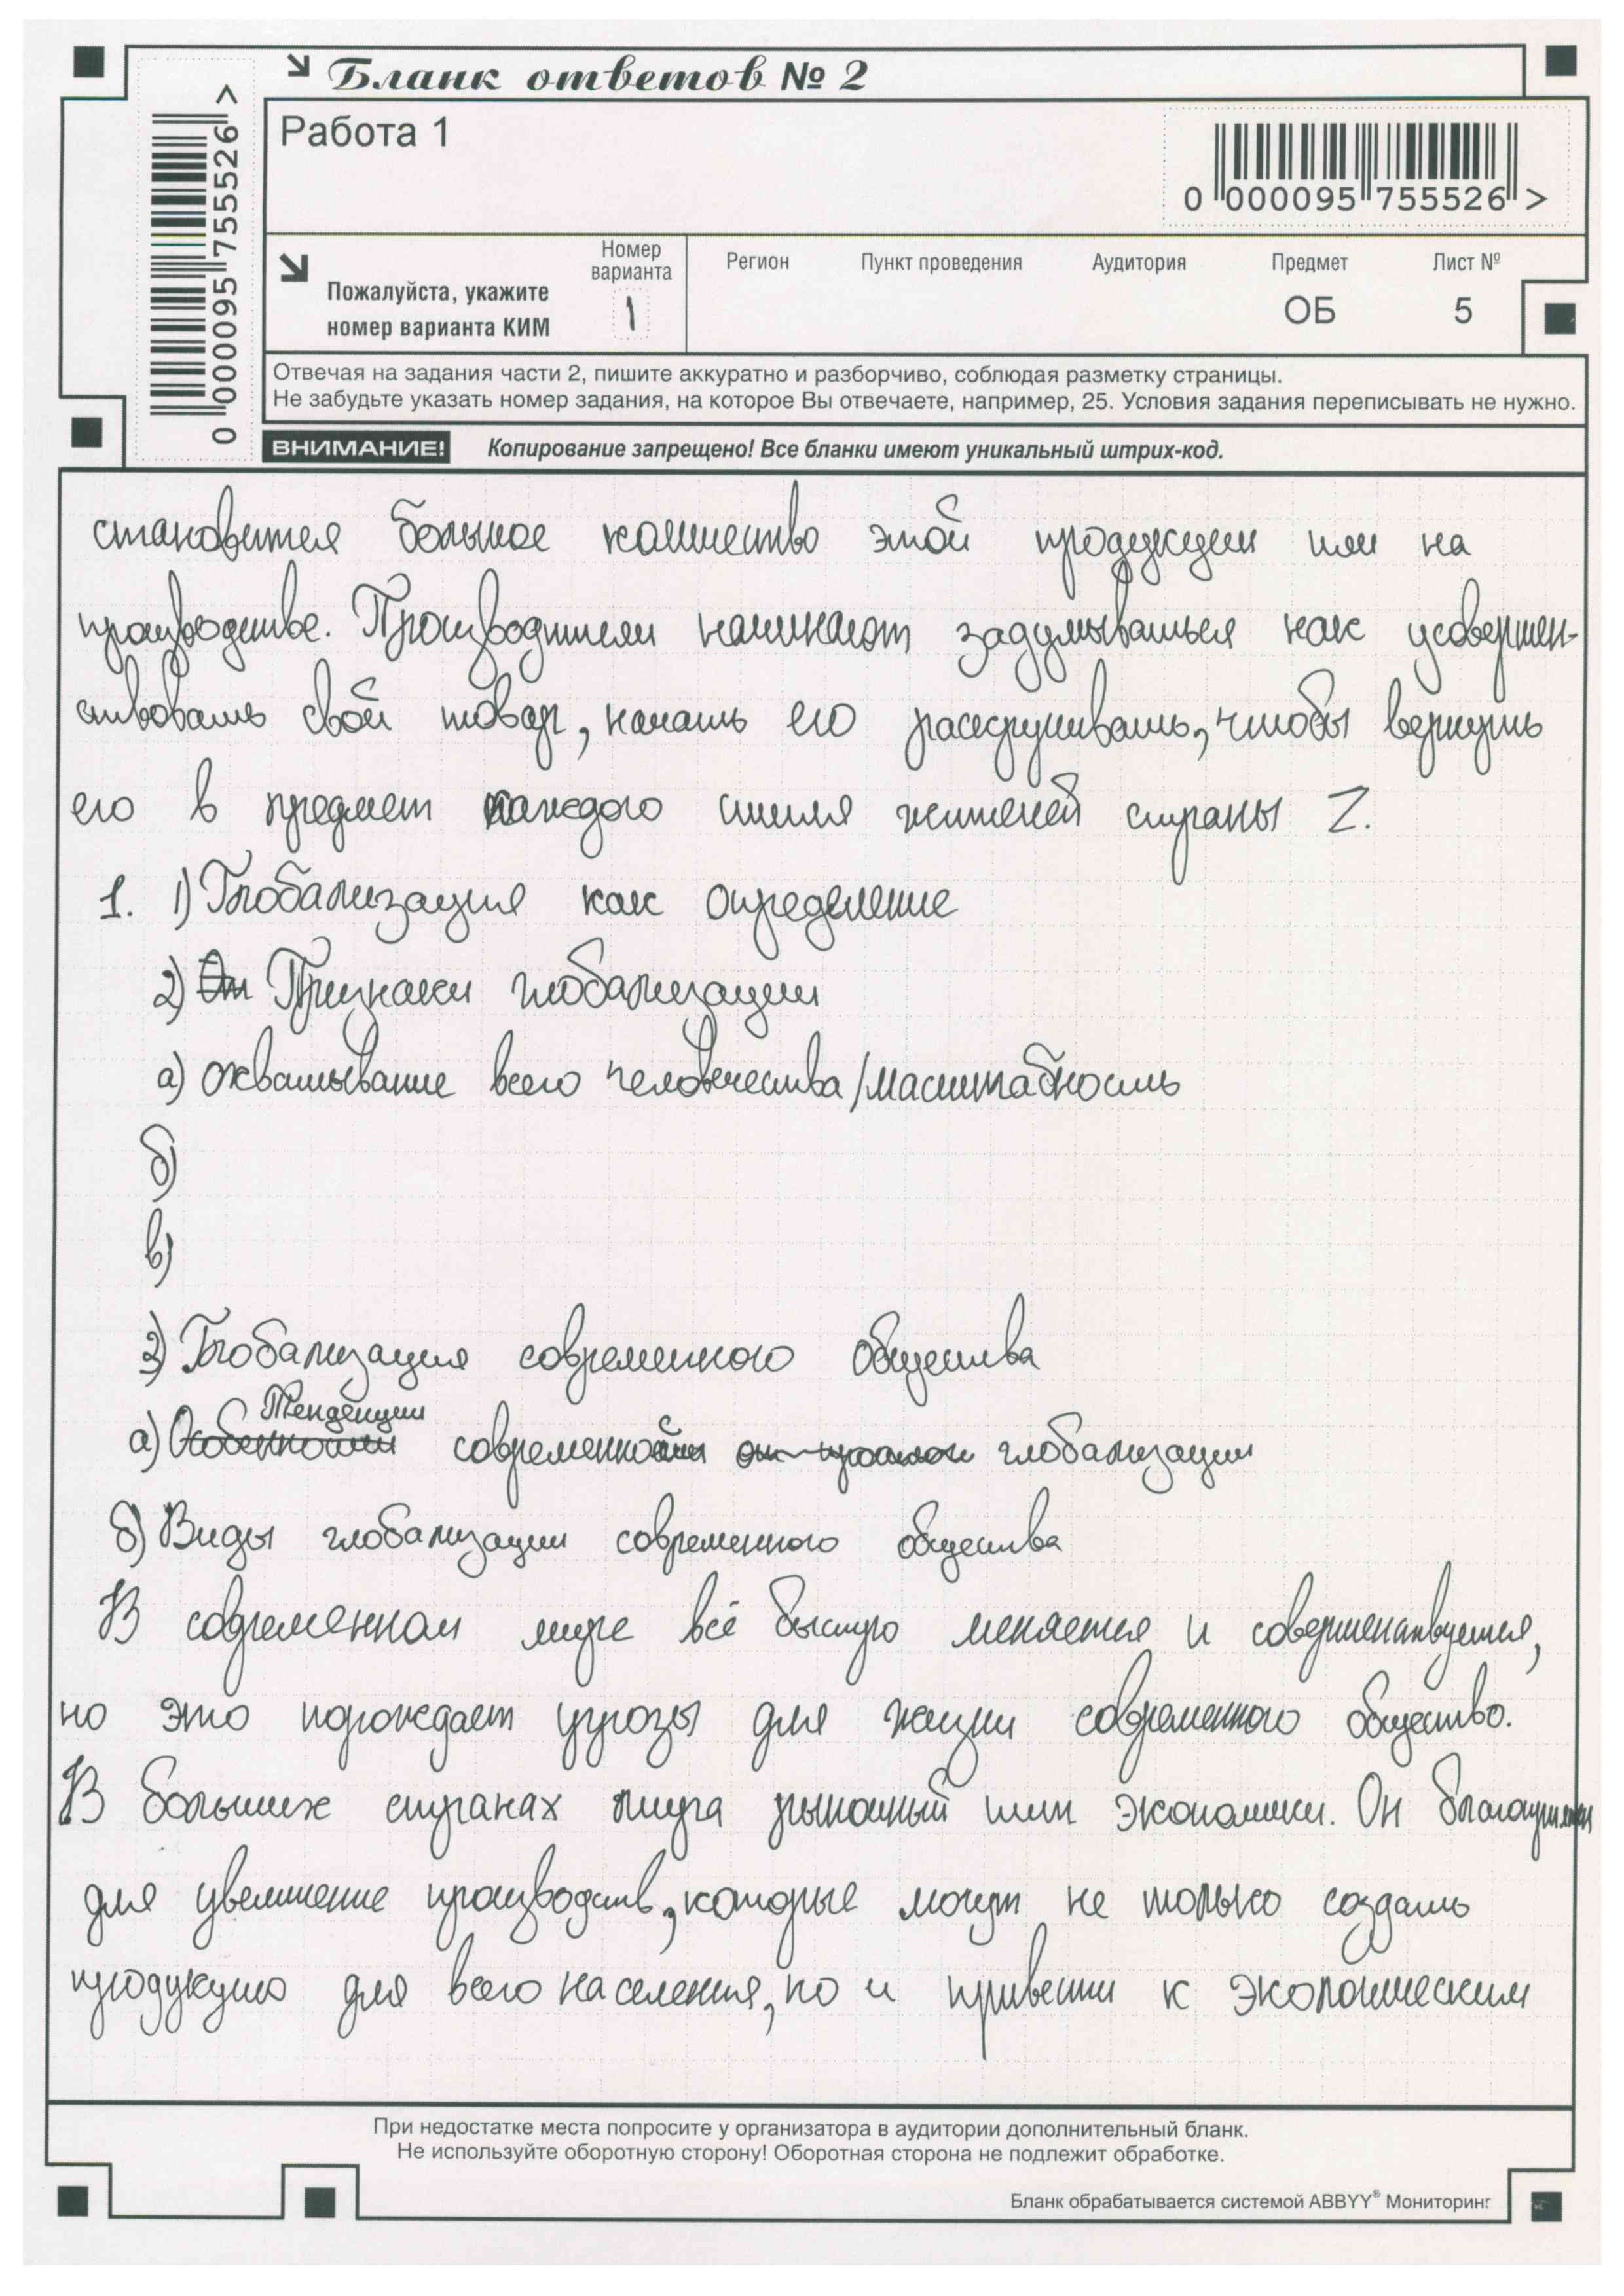 Бланк ответов № 2
Работа 1
0 000095 755526 >
0 000095 755526 >
Пожалуйста, укажите номер варианта КИМ
Номер варианта
1
Регион
Пункт проведения
Аудитория
Предмет
ОБ
Лист №
5
Отвечая на задания части 2, пишите аккуратно и разборчиво, соблюдая разметку страницы.
Не забудьте указать номер задания, на которое Вы отвечаете, например, 25. Условия задания переписывать не нужно.
ВНИМАНИЕ! Копирование запрещено! Все бланки имеют уникальный штрих-код.
становится большое количество этой продукции или на
производстве. Производители начинают задумываться как усовершен-
ствовать свой товар, начать его раскручивать, чтобы вернуть
его в предмет каждого стиля жителей страны Z.
1. 1) Глобализация как определение
2) Признаки глобализации
а) охватывание всего человечества/масштабность
б)
в)
3) Глобализация современного общества
а) Тенденции современной глобализации
б) Виды глобализации современного общества
В современном мире всё быстро меняется и совершенствуется,
но это порождает угрозы для жизни современного общество.
В больших странах мира рыночный тип экономики. Он
для увеличение производств, которые могут не только создать
продукцию для всего населения, но и привести к экологическим
При недостатке места попросите у организатора в аудитории дополнительный бланк.
Не используйте оборотную сторону! Оборотная сторона не подлежит обработке.
Бланк обрабатывается системой ABBYY® Мониторинг